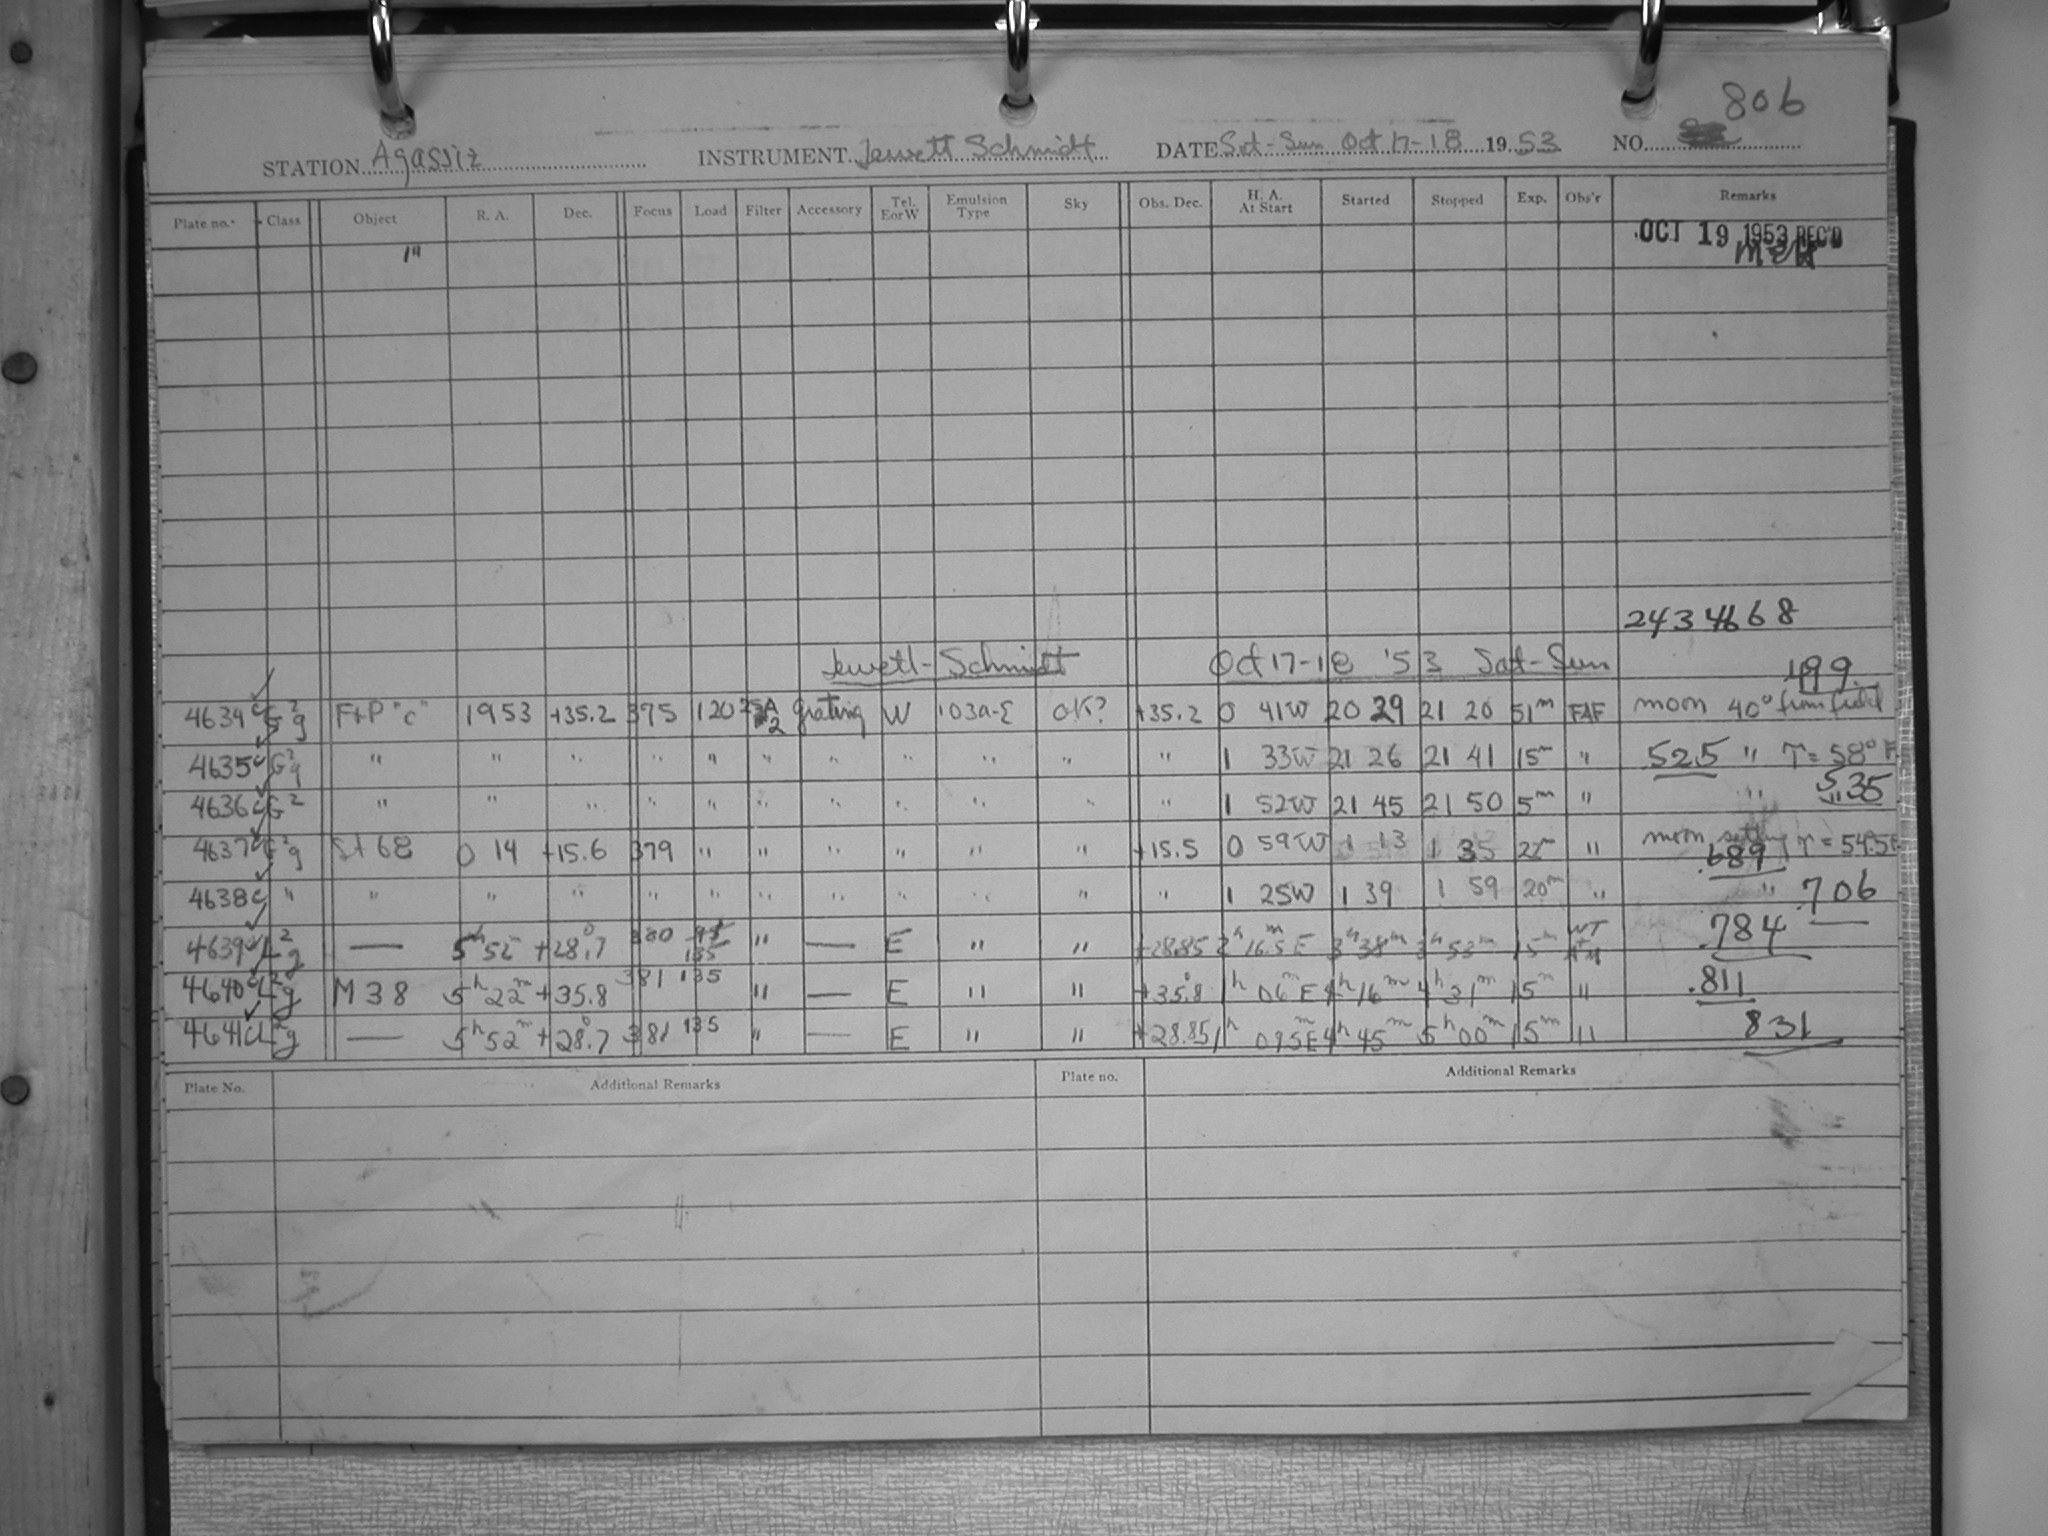 806
STATION Agassiz INSTRUMENT Jewett Schmidt DATE Sat-Sun Oct 17-18 1953 NO.
Plate no. Class Object R. A. Dec. Focus Load Filter Accessory Tel. E or W Emulsion Type Sky Obs. Dec. H. A. At Start Started Stopped Exp. Obs'r Remarks
OCT 19 1953 REC'D
2434668
Jewett-Schmidt Oct 17-18 '53 Sat-Sun .499
4634 F+P "c" 1953 +35.2 375 120 grating W 103a-E OK? +35.2 0 41W 20 29 21 20 51m FAF moon 40° from field
4635 " " " " " " " " " " " 1 33W 21 26 21 41 15m " .525 " T=58°F
4636 G2 " " " " " " " " " " " 1 52W 21 45 21 50 5m " " .535
4637 St 68 0 14 +15.6 379 " " " " " " +15.5 0 59W 1 13 1 35 22m " moon setting T=54.5F .689
4638 " " " " " " " " " " " " 1 25W 1 39 1 59 20m " " .706
4639 — 5h 52 +28°.7 380 135 " — E " " +28.85 2h 16.5m E 3h 38m 3h 53m 15m .784
4640 M 38 5h 22m +35.8 381 135 " — E " " +35°.8 1h 06m E 4h 16m 4h 31m 15m " .811
4641 — 5h 52m +28°.7 381 135 " — E " " +28.85 1h 09.5E 4h 45m 5h 00m 15m " 831
Plate No. Additional Remarks Plate no. Additional Remarks